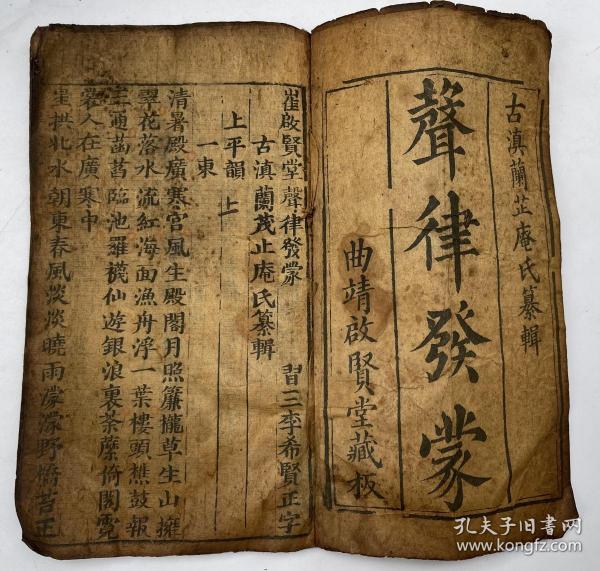 古滇蘭芷庵氏纂輯
聲律發蒙
曲靖啟賢堂藏板
崔啟賢堂聲律發蒙
習三李希賢正字
古滇蘭茂止庵氏纂輯
上平韻 上
一東
清暑殿廣寒宮風生殿閣月照簾櫳草生山擁
翠花落水流紅海面漁舟浮一葉樓頭樵鼓報
三通菡萏臨池羅襪仙遊銀浪裏荼蘼倚閣霓
裳人在廣寒中
星拱北水朝東春風淡淡曉雨濛濛野橋苔正
孔夫子旧书网
www.kongfz.com